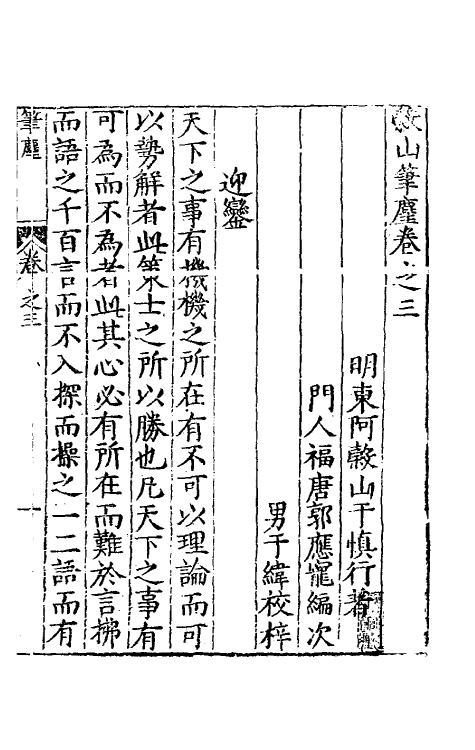 穀山筆麈卷之三
明東阿穀山于慎行著
門人福唐郭應寵編次
男于緯校梓
迎鑾
天下之事有機機之所在有不可以理論而可
以勢解者此策士之所以勝也凡天下之事有
可為而不為者此其心必有所在而難於言拂
而語之千百言而不入揬而操之一二語而有
筆麈
卷之三
一